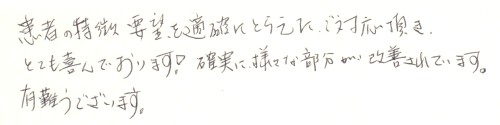 患者の特徴、要望を適確にとらえた、ご対応頂き、
とても喜んでおります! 確実に、様々な部分が改善されています。
有難うございます。